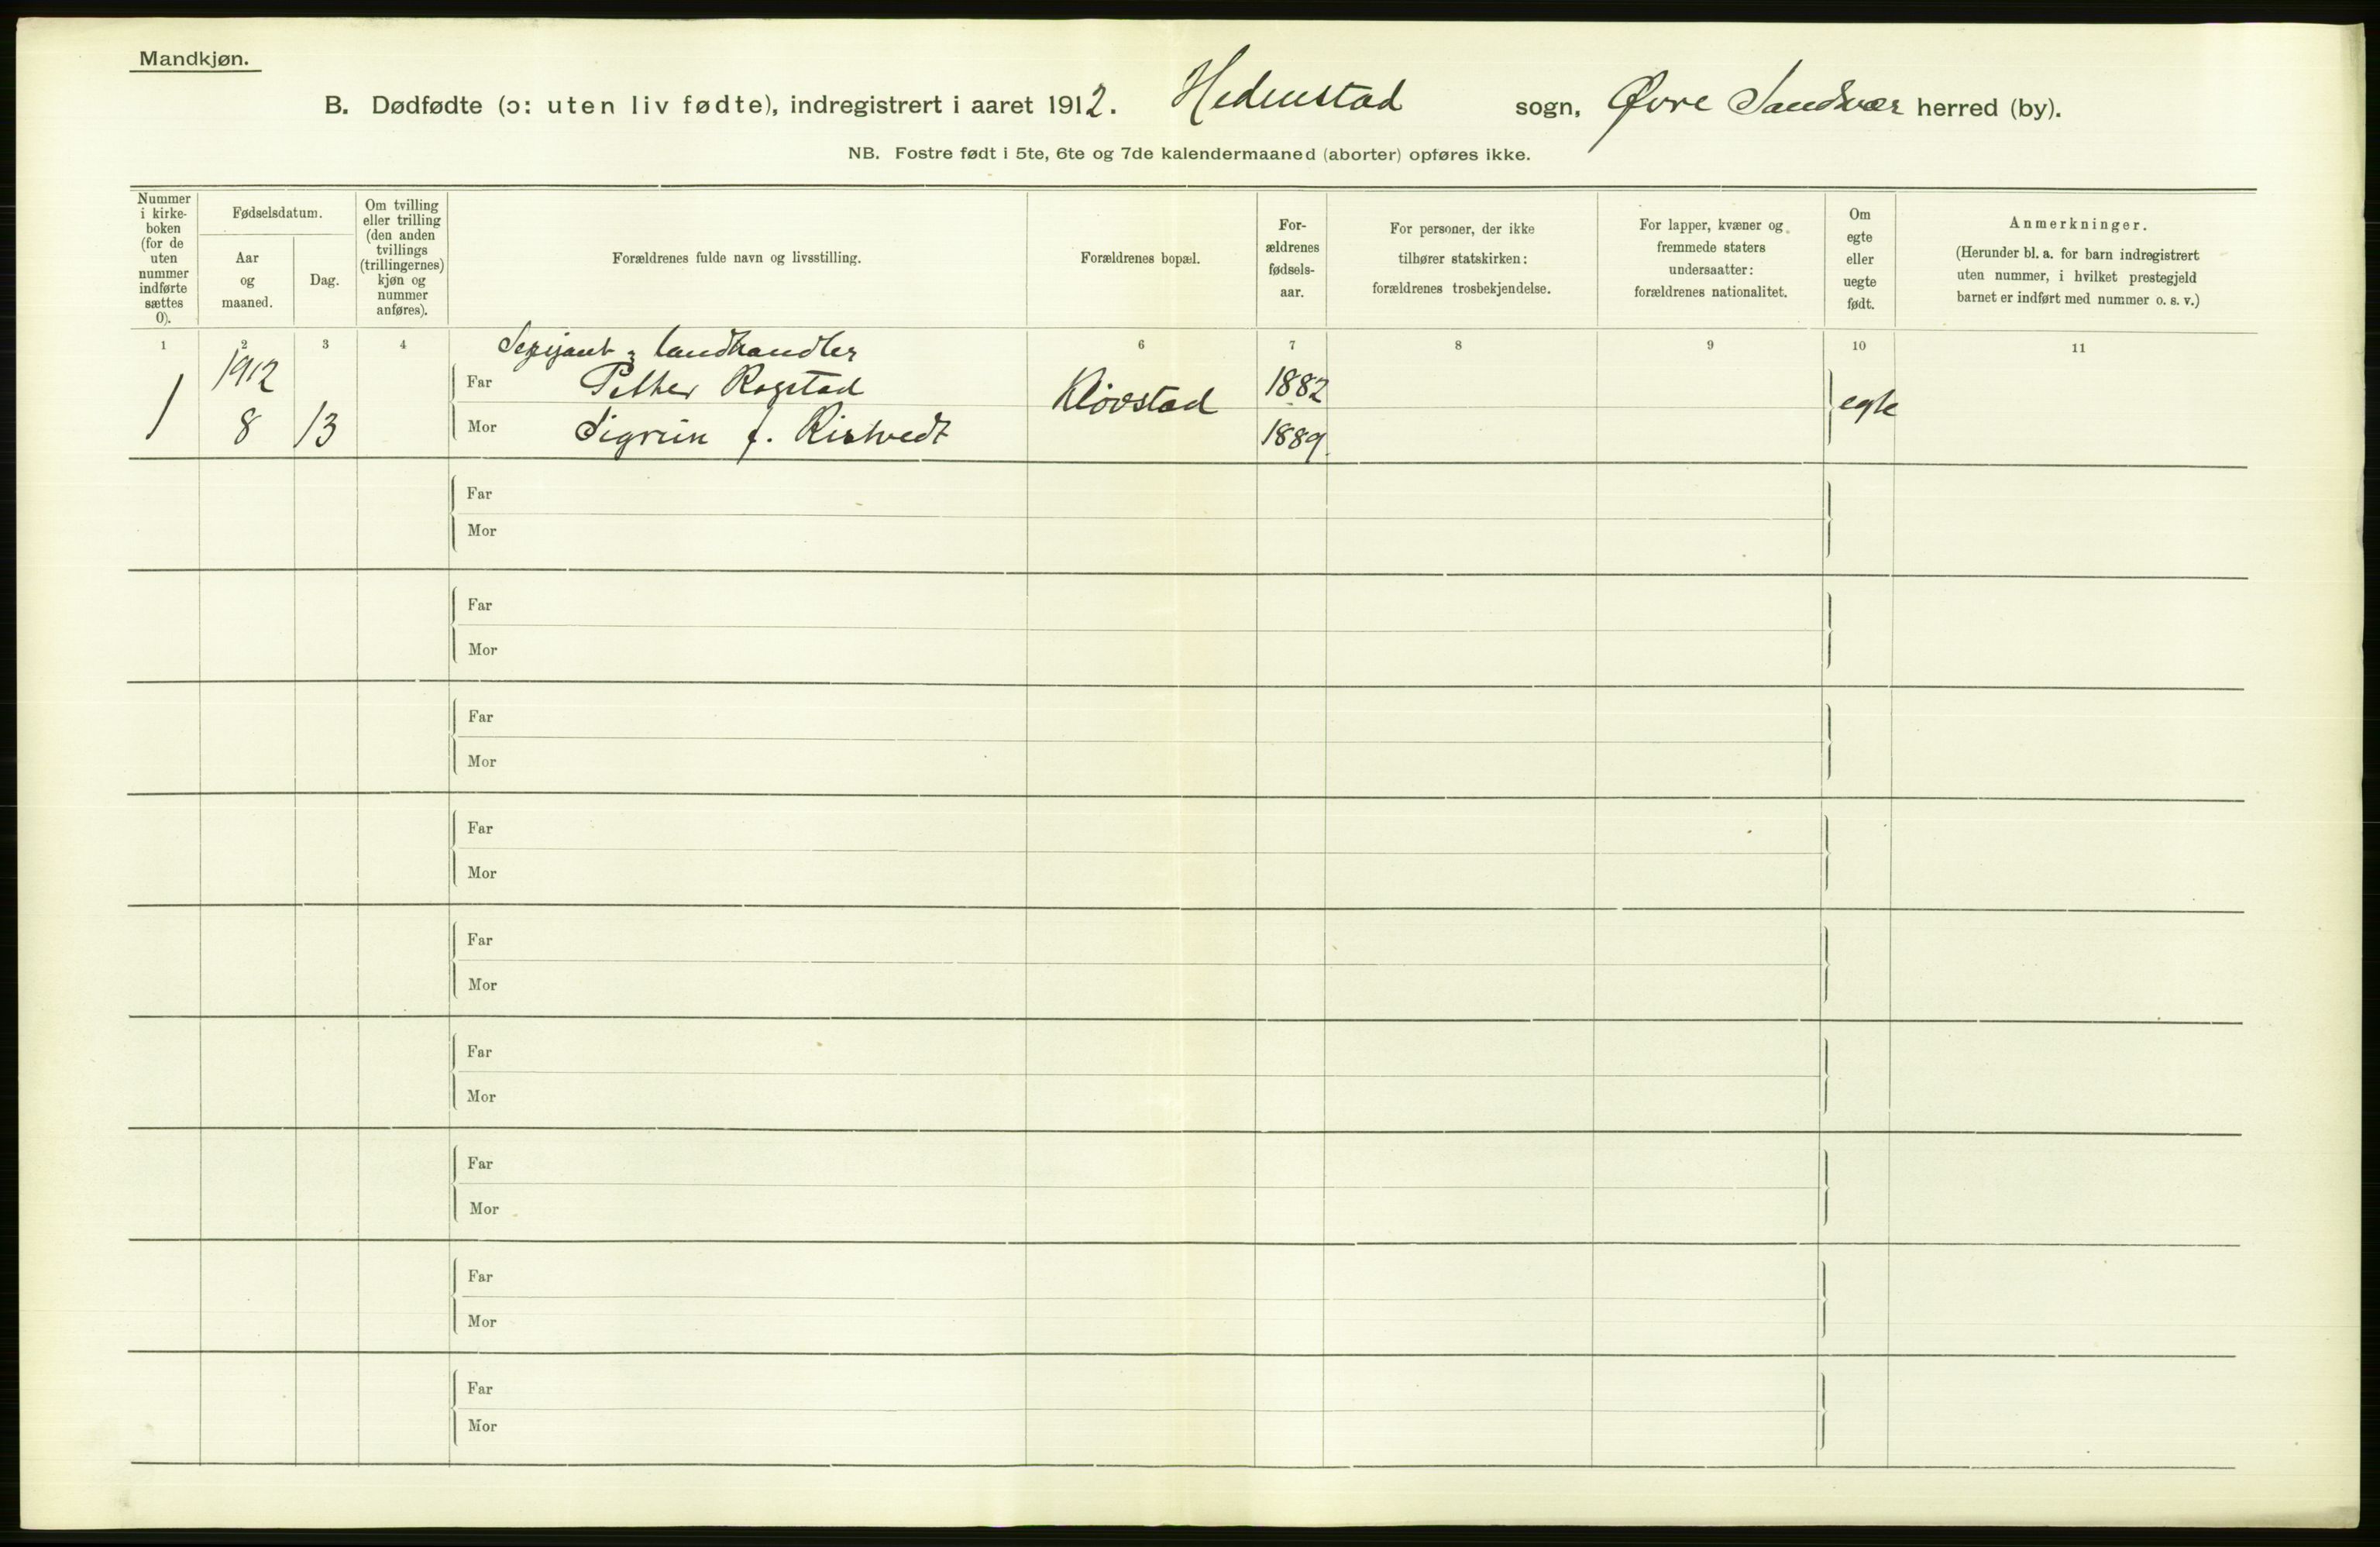 Mandkjøn.
B. Dødfødte (ɔ: uten liv fødte), indregistrert i aaret 1912. Hedenstad sogn, Øvre Sandsvær herred (by).
NB. Fostre født i 5te, 6te og 7de kalendermaaned (aborter) opføres ikke.
Nummer
i kirke-
boken
(for de
uten
nummer
indførte
sættes
0).
Fødselsdatum.
Aar
og
maaned.
Dag.
Om tvilling
eller trilling
(den anden
tvillings
(trillingernes)
kjøn og
nummer
anføres).
Forældrenes fulde navn og livsstilling.
Forældrenes bopæl.
For-
ældrenes
fødsels-
aar.
For personer, der ikke
tilhører statskirken:
forældrenes trosbekjendelse.
For lapper, kvæner og
fremmede staters
undersaatter:
forældrenes nationalitet.
Om
egte
eller
uegte
født.
Anmerkninger.
(Herunder bl. a. for barn indregistrert
uten nummer, i hvilket prestegjeld
barnet er indført med nummer o. s. v.)
1 2 3 4 6 7 8 9 10 11
Sersjant & landhandler
1 1912 8 13
Far Petter Rogstad
Mor Sigrun f. Ristvedt
Kløvstad
1882
1889.
egte
Far
Mor
Far
Mor
Far
Mor
Far
Mor
Far
Mor
Far
Mor
Far
Mor
Far
Mor
Far
Mor